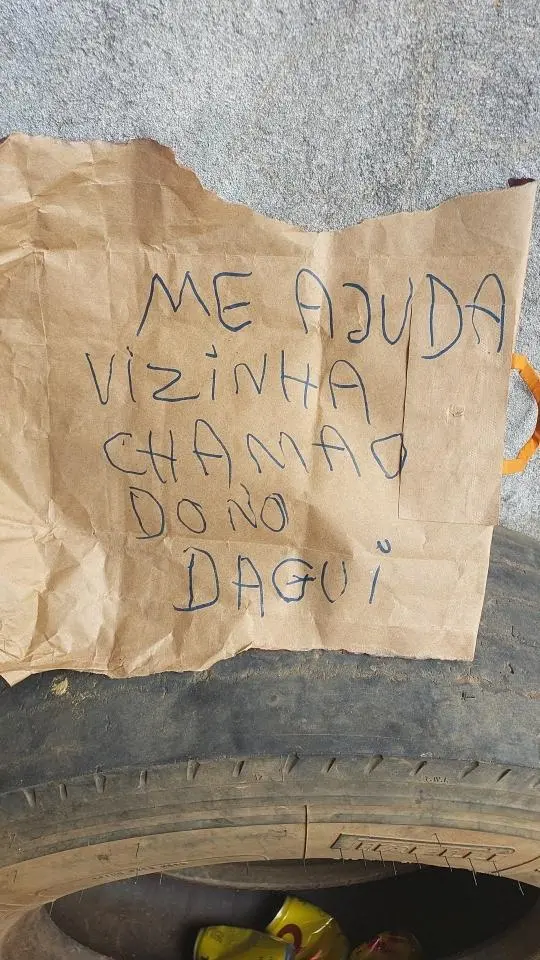 ME AJUDA
VIZINHA
CHAMAO
DONO
DAGUI
T.W.I.